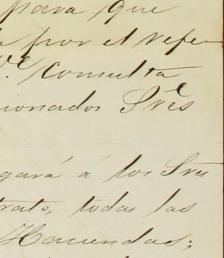 para que
por el refe
consulta
cionados Sres
gará á los Sres
trato, todas las
Haciendas;